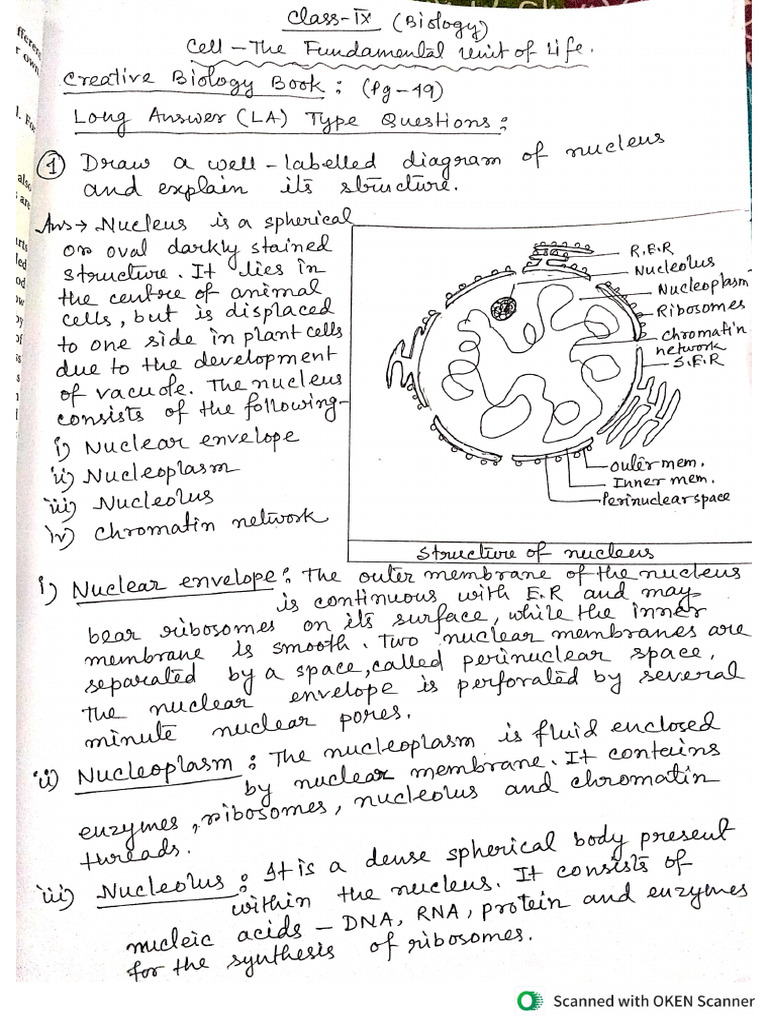 Class-IX (Biology)
Cell - The Fundamental Unit of Life.
Creative Biology Book: (Pg-49)
Long Answer (LA) Type Questions:
① Draw a well-labelled diagram of nucleus
and explain its structure.
Ans → Nucleus is a spherical
or oval darkly stained
structure. It lies in
the centre of animal
cells, but is displaced
to one side in plant cells
due to the development
of vacuole. The nucleus
consists of the following-
i) Nuclear envelope
ii) Nucleoplasm
iii) Nucleolus
iv) Chromatin network
R.E.R
Nucleolus
Nucleoplasm
Ribosomes
Chromatin
network
S.E.R
Outer mem.
Inner mem.
Perinuclear space
Structure of nucleus
i) Nuclear envelope: The outer membrane of the nucleus
is continuous with E.R and may
bear ribosomes on its surface, while the inner
membrane is smooth. Two nuclear membranes are
separated by a space, called perinuclear space,
The nuclear envelope is perforated by several
minute nuclear pores.
ii) Nucleoplasm: The nucleoplasm is fluid enclosed
by nuclear membrane. It contains
enzymes, ribosomes, nucleolus and chromatin
threads.
iii) Nucleolus: It is a dense spherical body present
within the nucleus. It consists of
nucleic acids - DNA, RNA, protein and enzymes
for the synthesis of ribosomes.
Scanned with OKEN Scanner